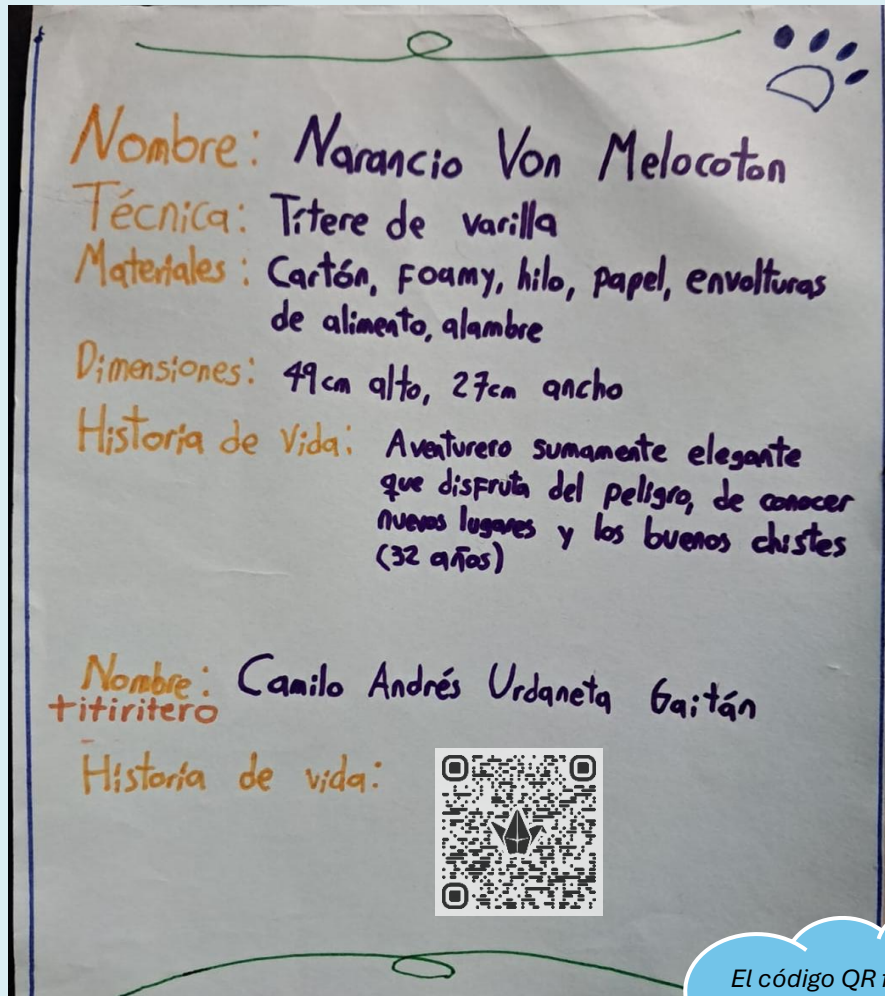 Nombre: Narancio Von Melocoton
Técnica: Títere de varilla
Materiales: Cartón, Foamy, hilo, papel, envolturas
de alimento, alambre
Dimensiones: 49cm alto, 27cm ancho
Historia de Vida: Aventurero sumamente elegante
que disfruta del peligro, de conocer
nuevos lugares y los buenos chistes
(32 años)
Nombre: Camilo Andrés Urdaneta Gaitán
titiritero
Historia de vida:
El código QR